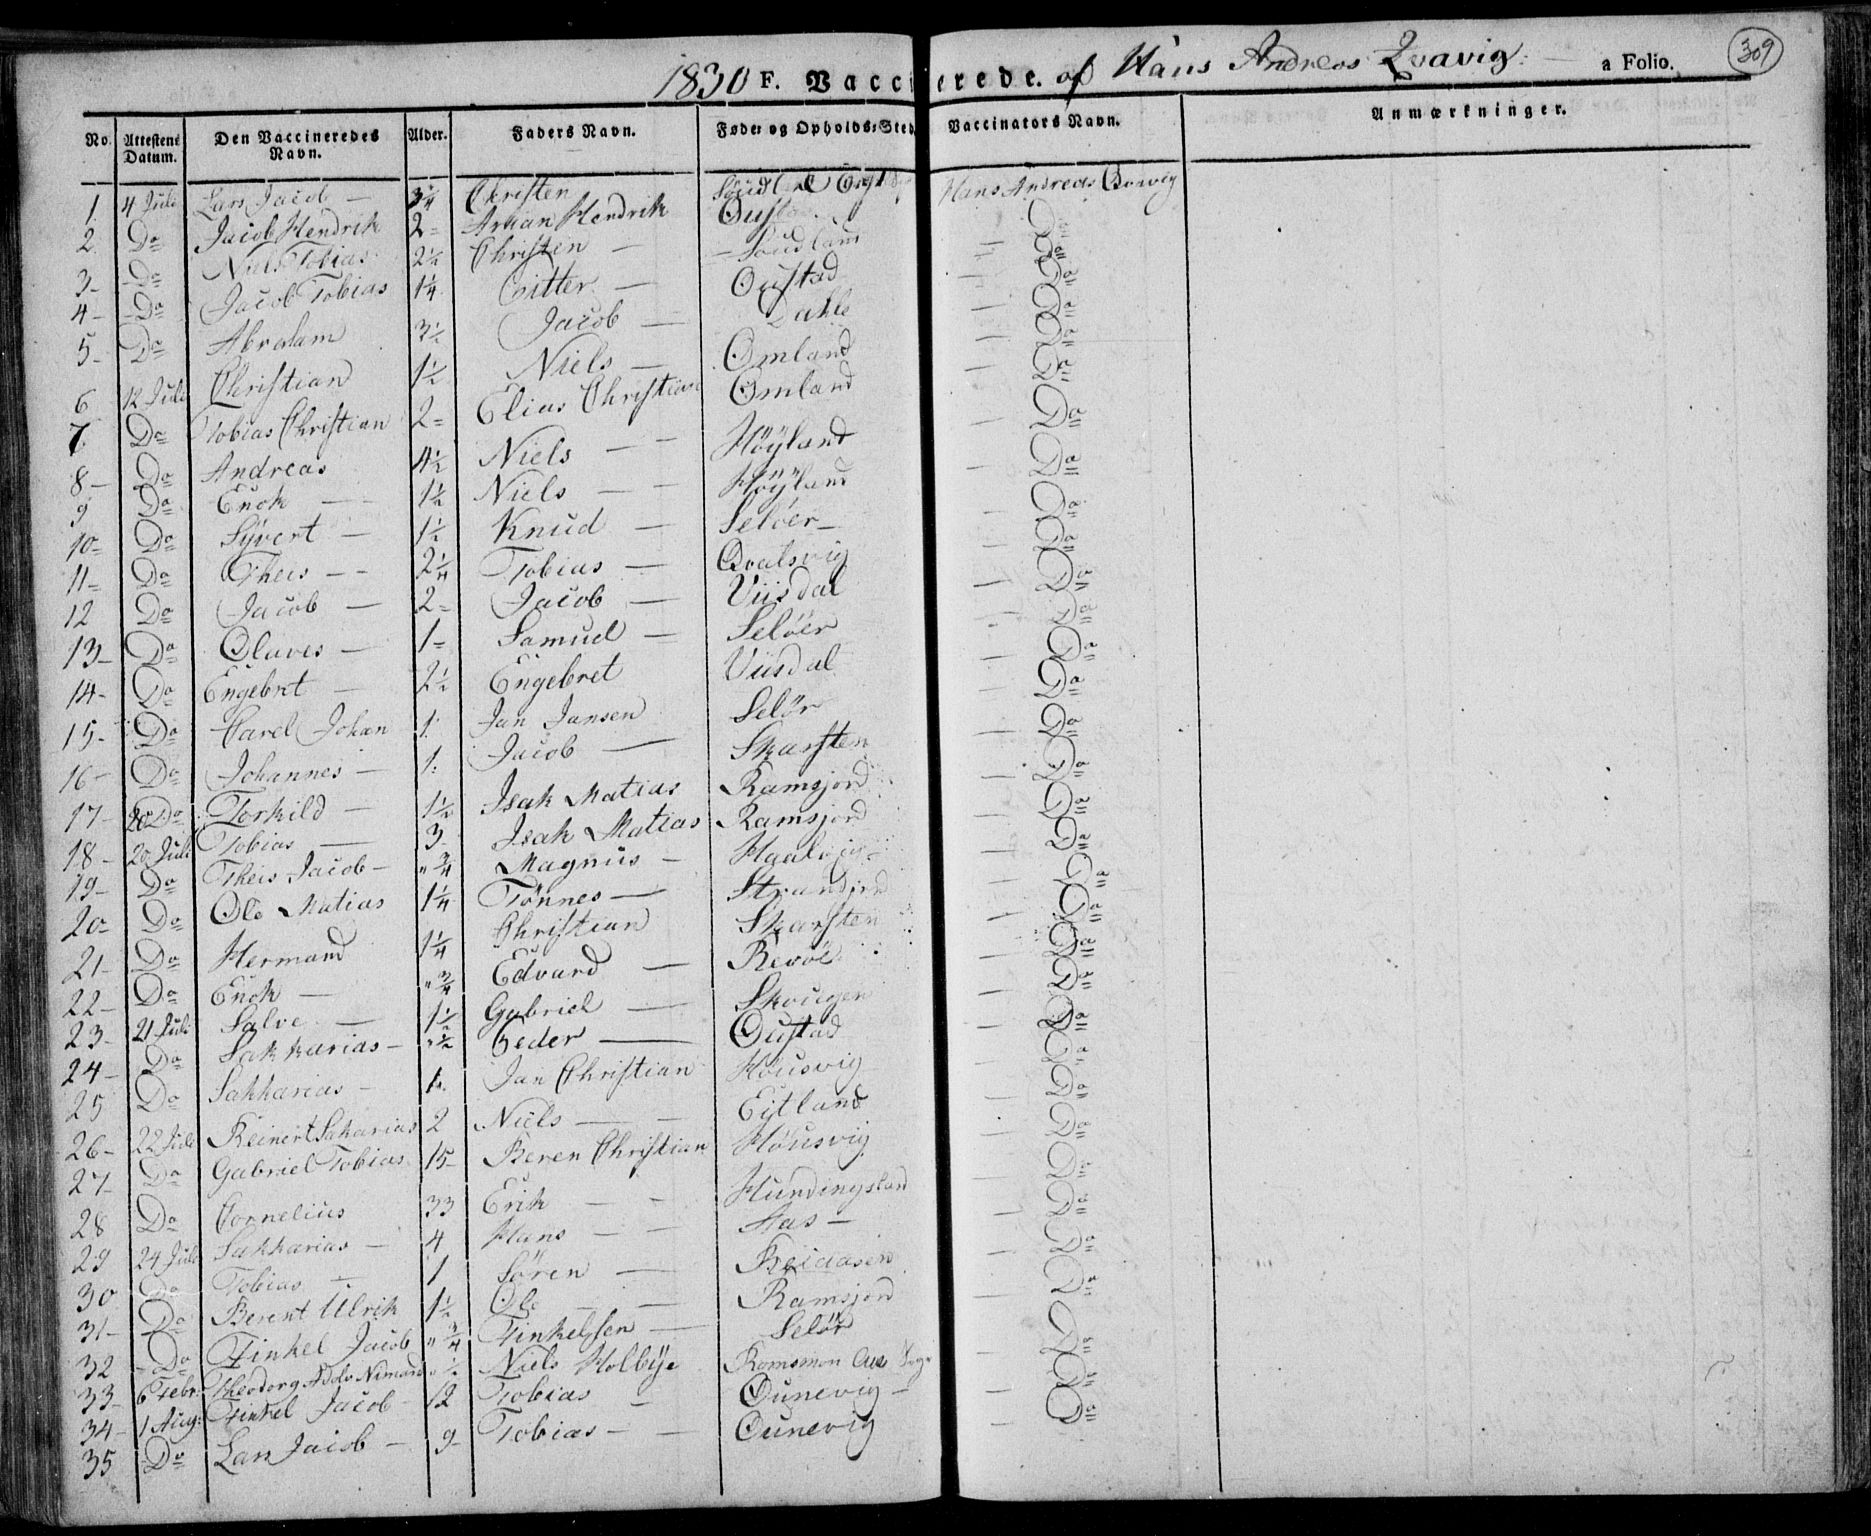 1830 F. Vaccinerede. af Hans Andreas Qvavig. a Folio. 309
No. Attestens Datum. Den Vaccineredes Navn. Alder. Faders Navn. Føde- og Opholds-Sted. Vaccinators Navn. Anmærkninger.
1. 4 Juli Lars Jacob — 3 1/4 Christen Hans Andreas Qvavig
2. Do Jacob Hendrik 2 = Arian Hendrik Oustad — Do
3 - Do Niels Tobias 2 1/2 Christen — — Do
4 - Do Jacob Tobias 1 1/4 Pitter — Oustad — Do
5 - Do Abraham 3 1/2 Jacob — Dahle — Do
6 12 Juli Christian 1 1/2 Niels — Omland — Do
7. Do Tobias Christian 2 = Elias Christian Omland — Do
8 - Do Andreas 4 1/2 Niels — Höyland — Do
9 Do Enok — 1 1/2 Niels — Höyland — Do
10 = Do Syvert — 1 1/2 Knud — Selöer — — Do
11 = Do Theis — 2 1/4 Tobias — Qvalsvig — Do
12 Do Jacob — 2 = Jacob — Viisdal — Do
13 - Do Olaves — 1 = Samuel — Selöer — Do
14 - Do Engebret — 2 1/2 Engebret Viisdal — Do
15 - Do Carel Johan 1. Jan Jansen Selör — Do
16 - Do Johannes — 1. Jacob — Skarsten — Do
17 - Do Torkild — 1 1/2 Isak Matias Ramsjord — Do
18 - 20 Juli Tobias — 3 Isak Matias Ramsjord — Do
19 - Do Theis Jacob — " 3/4 Magnus — — Do
20 - Do Ole Matias 1 1/4 Tönnes — Strandjord — Do
21 - Do Hermand 1 1/4 Christian Skarsten — Do
22 - Do Enok — " 3/4 Edvard — — Do
23 - 21 Juli Salve — 1 1/2 Gabriel — Skougen — Do
24 - Do Sakkarias — " 1/2 Peder — Oustad — Do
25 Do Sakkarias — 1. Jan Christian Housvig — Do
26 - 22 Juli Reinert Sakarias 2 Niels — Eitland — Do
27 - Do Gabriel Tobias 15 - Beren Christian Housvig — Do
28 Do Cornelius 33 Erik — Hundingsland — Do
29 24 Juli Sakkarias — 4 Hans — Aas — — Do
30 Do Tobias — 1 Sören — — Do
31 - Do Berent Ulrik 1 1/2 Ole — Ramsjord — Do
32 - Do Finkel Jacob " 3/4 Finkelsen — Selör — Do
33 - 6 Febr: Theodorg Adolv Nimand " 1/2 Niels Holbye — Do
34 - 1 Aug: Finkel Jacob — 12 Tobias — Ounevig — — Do
35 Do Lars Jacob — 9 - Tobias — Ounevig —